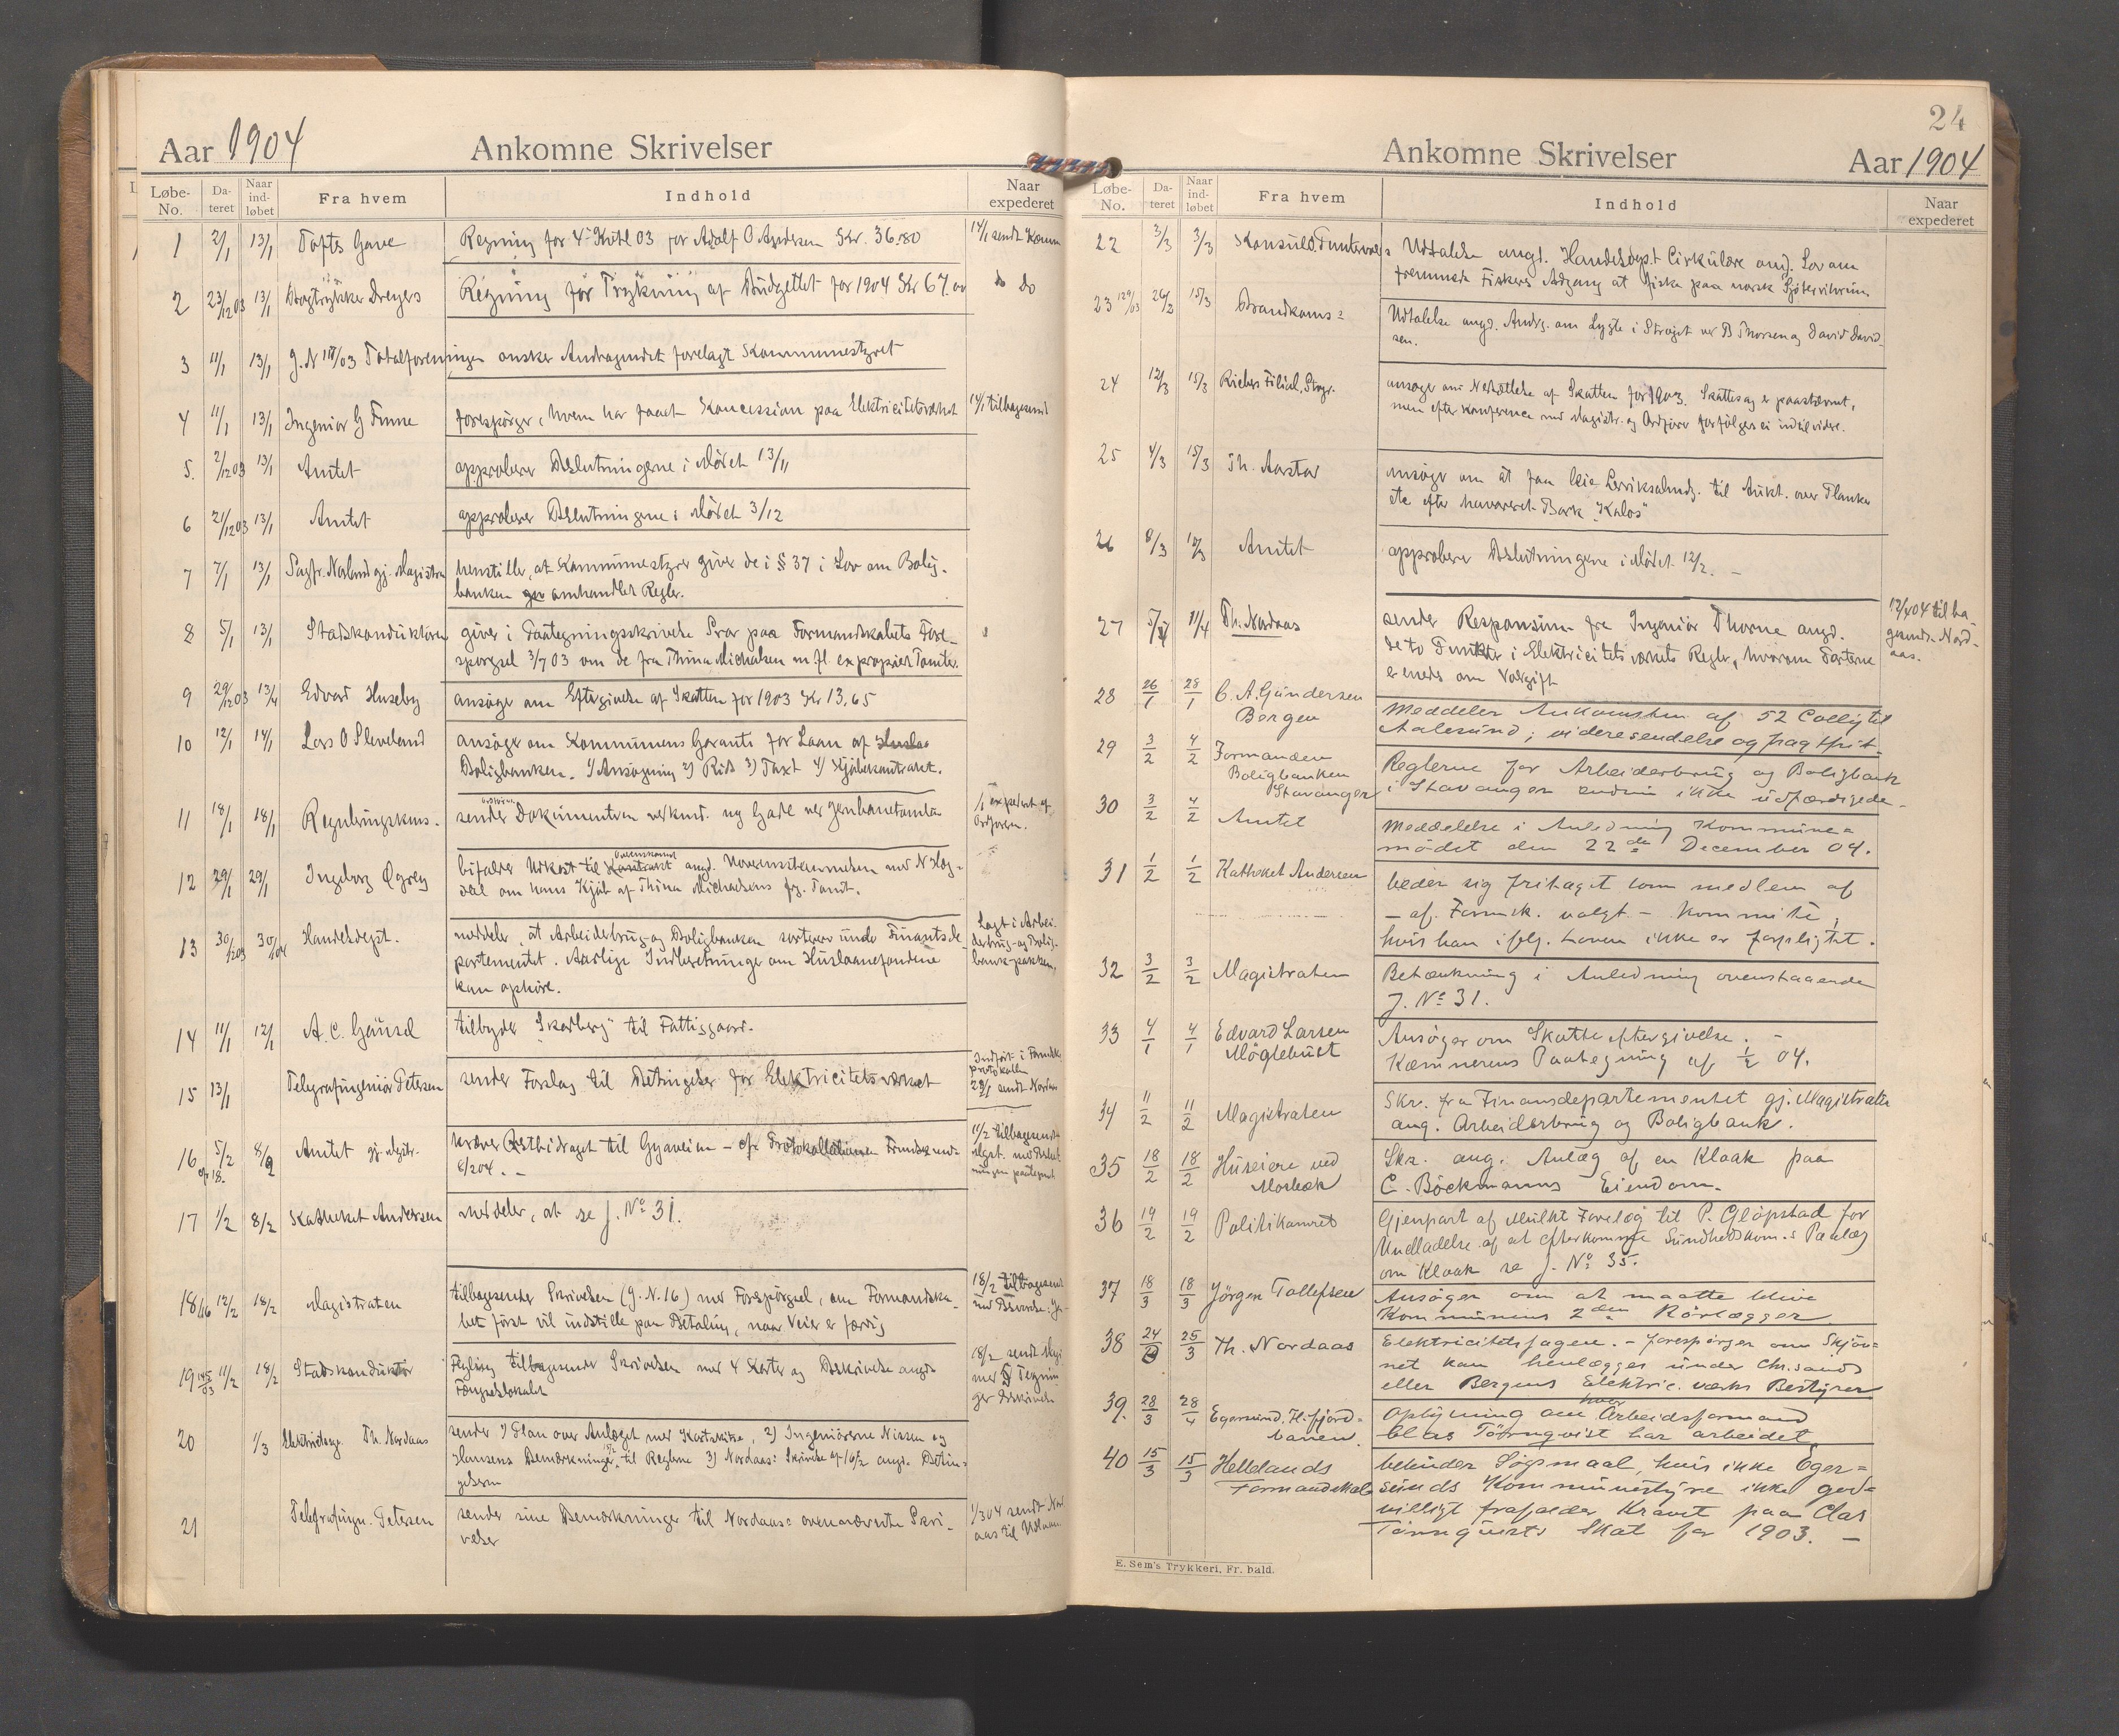 Aar 1904 Ankomne Skrivelser
Løbe-No. Da-teret Naar ind-løbet Fra hvem Indhold Naar expederet
1 2/1 13/1 Tofts Gave Regning for 4. Kvtl 03 for Adolf O Andersen Kr. 36.80 14/1 sendt Kæmn
2 23/12 03 13/1 Bogtrykker Dreyers Regning for Trykning af Budgettet for 1904 Kr 67.00 do Do
3 11/1 13/1 J.N /03 Totalforeningen ønsker Andragendet forelagt Kommunestyret
4 11/1 13/1 Ingeniør G Finne forespørger, hvem har faaet Koncession paa Elektricitetsværket 14/1 tilbagesendt
5. 2/12 03 13/1 Amtet approberer Beslutningerne i Mødet 13/11
6 21/12 03 13/1 Amtet approberer Beslutningerne i Mødet 3/12
7 7/1 13/1 Sagfr. gj. Magistraten henstiller, at Kommunestyret giver de i § 37 i Lov om Bolig-
banken omhandlede Regler.
8 5/1 13/1 Stadskonduktøren giver i Paategningsskrivelse Svar paa Formandskabets Fore-
spørgsel 3/7 03 om de fra Thina Michalsen m. fl. exproprierte Tomter.
9 29/12 03 13/1 Edvard Huseby ansøger om Eftergivelse af Skatten for 1903 Kr 13,65
10 12/1 14/1 Lars O Sleveland ansøger om Kommunens Garanti for Laan af
Boligbanken. 1) Ansøgning 2) Rids 3) Taxt 4) Kjøbekontrakt.
11 18/1 18/1 Reguleringskoms. sender Dokumenterne vedkmd. ny Gade ved Jernbanetomten expedert af
Ordføren.
12 29/1 29/1 Ingeborg bifalder Udkast til Overenskomst angd. Overensstemmelsen med N
om hans Kjøb af Thina Michaelsens Tomt.
13 30/12 03 30/1 04 Handelsdept. meddeler, at Arbeiderbrug- og Boligbanken sorterer under Finantsde-
partementet. Aarlige Indberetninger om Huslaanefondene
kan ophøre.
Lagt i Arbei-
derbrug- og Bolig-
bank-pakken,
14 11/1 12/1 A. C. Gäusel tilbyder "Skadberg" til Fattiggaard.
15 13/1 Telegrafingeniør Petersen sender Forslag til Betingelser for Elektricitetsværket Indført i Formsk.
protokollen
29/1 sendt Nordaas
16 5/2 8/2 Amtet gj. Mgstr. kræver Restbidraget til Gyaveien – cfr Protokollationen Formskmøde
6/2 04. – 11/2 tilbagesendt
Mgst. med Beslut-
ningen paategnet
cfr 18.
17 1/2 8/2 Katheket Andersen meddeler, at se J. No 31.
18 16 12/2 18/2 Magistraten tilbagesender Skrivelsen (J. N. 16) med Forespørgsel, om Formandska-
bet først vil indstille paa Betaling, naar Veien er færdig
18/2 tilbagesendt
med Besvarelse
19 145/03 11/2 18/2 Stadskonduktør tilbagesender Skrivelsen med 4 Karter og Beskrivelse angd.
Fængselslokalet
18/2 sendt
med Tegnin-
ger Beskrivelse
20 1/3 Th. Nordaas sender 1) Plan over Anlæget med Kartskitse, 2) Ingeniørerne Nissen og
Hansens Bemærkninger til Reglene 3) Nordaas: Skrivelse af 16/2 angd. Betin-
gelserne
21 Telegrafingn. Petersen sender sine Bemærkninger til Nordaas: ovennævnte Skri-
velser
1/3 04 sendt Nord-
aas til Udtal.
24
Ankomne Skrivelser Aar 1904
Løbe-No. Da-teret Naar ind-løbet Fra hvem Indhold Naar expederet
22 3/3 3/3 Konsul O. Puntervolds Udtalelse angd. Handelsdept. Cirkulære angd. Lov om
fremmede Fiskeres Adgang at fiske paa norsk Sjøterritorium
23 129/03 26/2 15/3 Brandkoms: Udtalelse angd. Andrg. om Lygte i Strøget ved B Thorsen og David David-
sen.
24 12/3 15/3 Riebers Filial, Stvgr. ansøger om Nedsættelse af Skatten for 1903. Skattesag er paastævnt,
men efter Konference med Magistr. og Ordfører forfølges ei indtil videre.
25 4/3 15/3 Th. Aarstad ansøger om at faa leie Lerviksalmdg. til Aukt. over Planker
etc efter havareret Bark "Kalos"
26 8/3 Amtet approberer Beslutningerne i Mødet 12/2. –
27 5/4 11/4 Th. Nordaas sender Responsum fra Ingeniør Thorne angd.
de to Punkter i Elektricitetsværkets Regler, hvorom Parterne
er enedes om Voldgift
12/4 04 tilba-
gesendt Nord-
aas.
28 26/1 28/1 C. A. Gundersen
Bergen
Meddeler Ankomsten af 52 Colly til
Aalesund; videresendelse og fragtfrit.
29 3/2 4/2 Formanden
Boligbanken
Stavanger
Reglerne for Arbeiderbrug og Boligbank
i Stavanger endnu ikke udfærdigede.
30 3/2 4/2 Amtet Meddelelse i Anledning Kommune-
mødet den 22de December 04.
31 1/2 1/2 Katheket Andersen beder sig fritaget som medlem af
– af Formsk. valgt – kommite,
hvis han ifølg. Loven ikke er forpligtet.
32 3/2 3/2 Magistraten Betænkning i Anledning ovenstaaende
J. No 31.
33 4/1 4/1 Edvard Larsen
Møglebust
Ansøger om Skatteeftergivelse. –
Kæmnerens Paategning af 1/2 04.
34 11/2 11/2 Magistraten Skr. fra Finansdepartementet gj. Magistraten
ang. Arbeiderbrug og Boligbank.
35 18/2 18/2 Huseiere ved
Mosbæk
Skr. ang. Anlæg af en Kloak paa
C. Böckmanns Eiendom.
36 19/2 19/2 Politikamret Gjenpart af Mulkt Forelæg til P. Gløpstad for
Undladelse af at efterkomme Sundhedskom.s Paalæg
om Kloak se J. No 35.
37 18/3 18/3 Jørgen Tollefsen Ansøger om at maatte blive
Kommunens 2den Rørlægger
38 24/3 25/3 Th. Nordaas Elektricitetssagen. – forespørger om Skjøn-
net kan henlægges under Chr.sands
eller Bergens Elektric. værks Bestyrer
39. 28/3 28/4 Egersund. Fl.fjord-
banen.
Oplysning om hvor Arbeidsformand
Clas Törnqvist har arbeidet
40 15/3 15/3 Hellelands
Formandskab
bebuder Søgsmaal, hvis ikke Eger-
sunds Kommunestyre ikke god-
villigt frafalder Kravet paa Clas
Törnquists Skat for 1903. –
E. Sem's Trykkeri, Fr. hald.